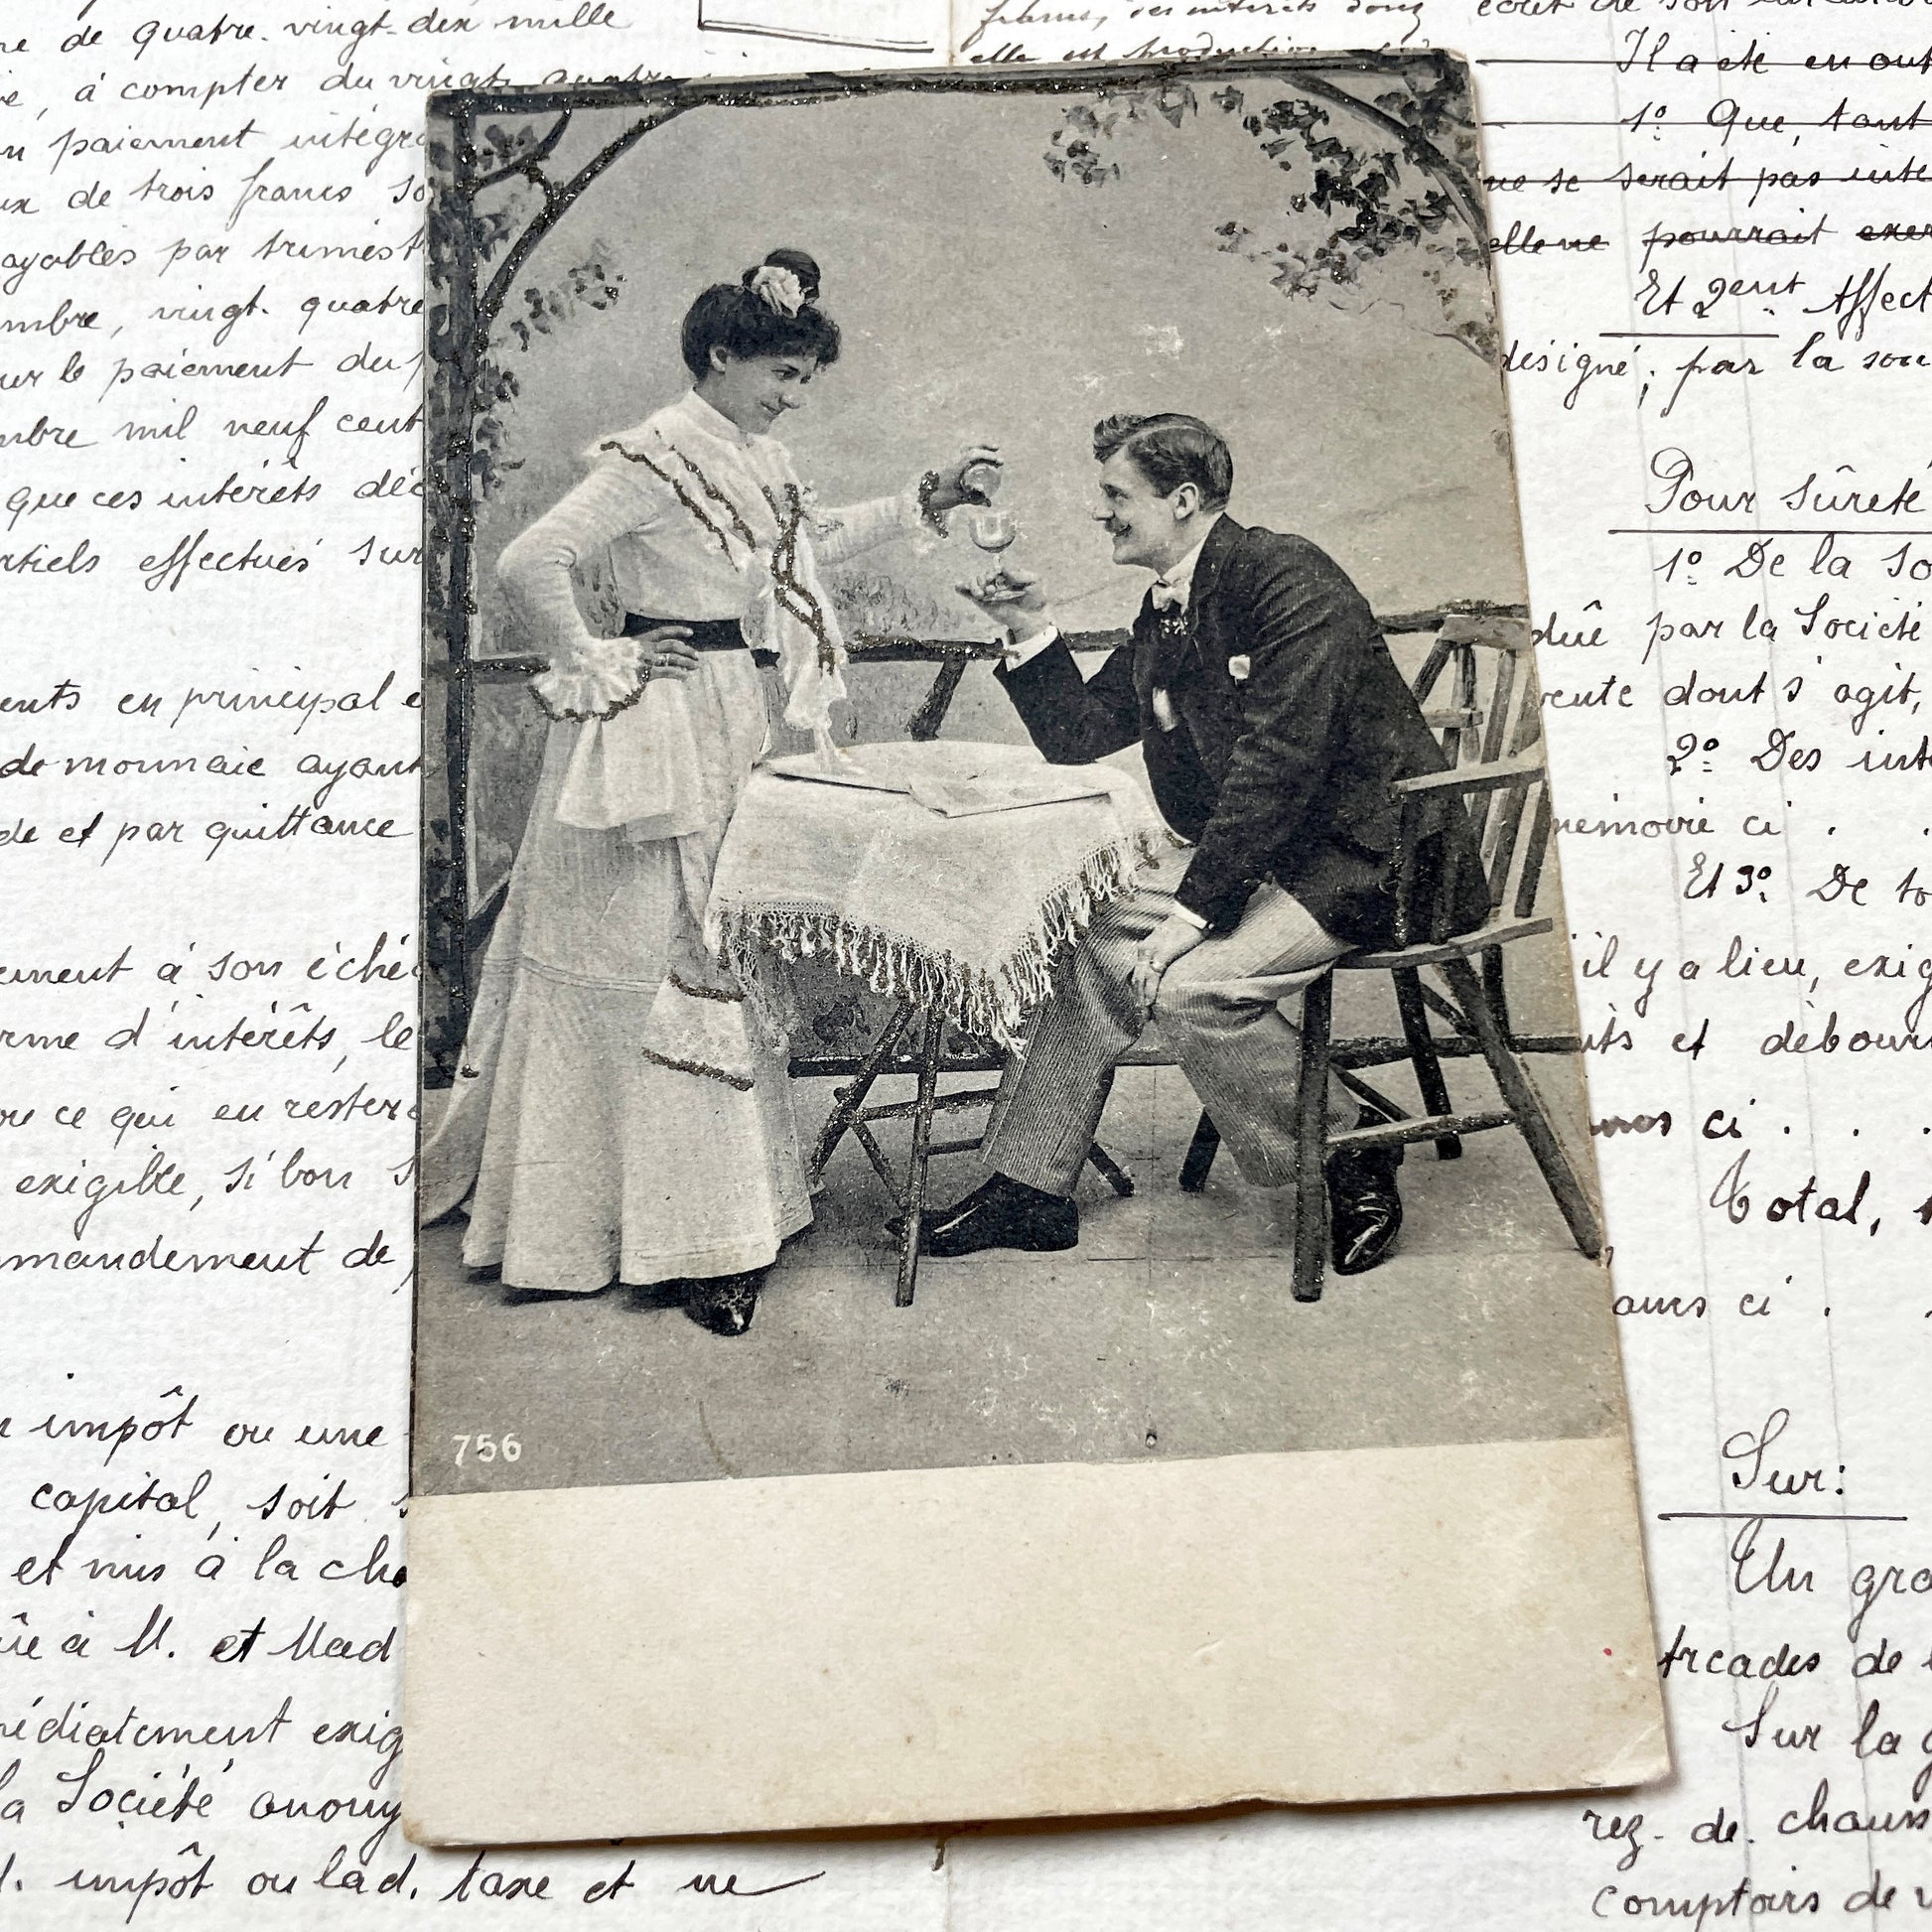 de quatre-vingt-dix mille
, à compter du vingt quatre
paiement intégr
de trois francs so
ayables par trimest
mbre, vingt-quatre
ur le paiement du
mbre mil neuf cent
que ces intérêts déc
rtiels effectués sur
ents en principal e
de monnaie ayant
de et par quittance
ement à son éché
rme d'intérêts, le
ce qui en rester
exigible, si bon s
mmandement de
impôt ou une
capital, soit
et mis à la cha
ûe à M. et Mad
médiatement exig
la Société anony
d. impôt ou lad. taxe et ne
francs, ses intérêts
elle est production
Il a été en out
1º Que, tant
ne se serait pas inte
elle ne pourrait exer
Et 2ent Affect
désigné; par la sou
Pour sûreté
1º De la so
dûe par la Société
vente dont s'agit,
2º Des inté
mémoire ci . .
Et 3º De to
il y a lieu, exig
its et débours
ci . . .
Total,
ci .
Sur:
Un gra
Arcades de
Sur la g
rez-de-chauss
comptoirs de v
756